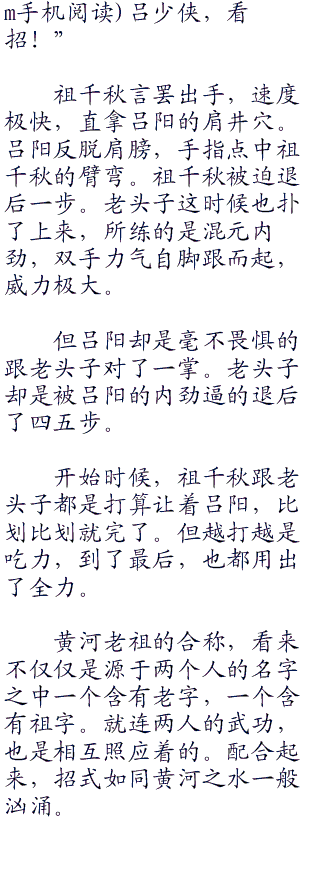 m手机阅读)吕少侠，看
招！”
祖千秋言罢出手，速度
极快，直拿吕阳的肩井穴。
吕阳反脱肩膀，手指点中祖
千秋的臂弯。祖千秋被迫退
后一步。老头子这时候也扑
了上来，所练的是混元内
劲，双手力气自脚跟而起，
威力极大。
但吕阳却是毫不畏惧的
跟老头子对了一掌。老头子
却是被吕阳的内劲逼的退后
了四五步。
开始时候，祖千秋跟老
头子都是打算让着吕阳，比
划比划就完了。但越打越是
吃力，到了最后，也都用出
了全力。
黄河老祖的合称，看来
不仅仅是源于两个人的名字
之中一个含有老字，一个含
有祖字。就连两人的武功，
也是相互照应着的。配合起
来，招式如同黄河之水一般
汹涌。